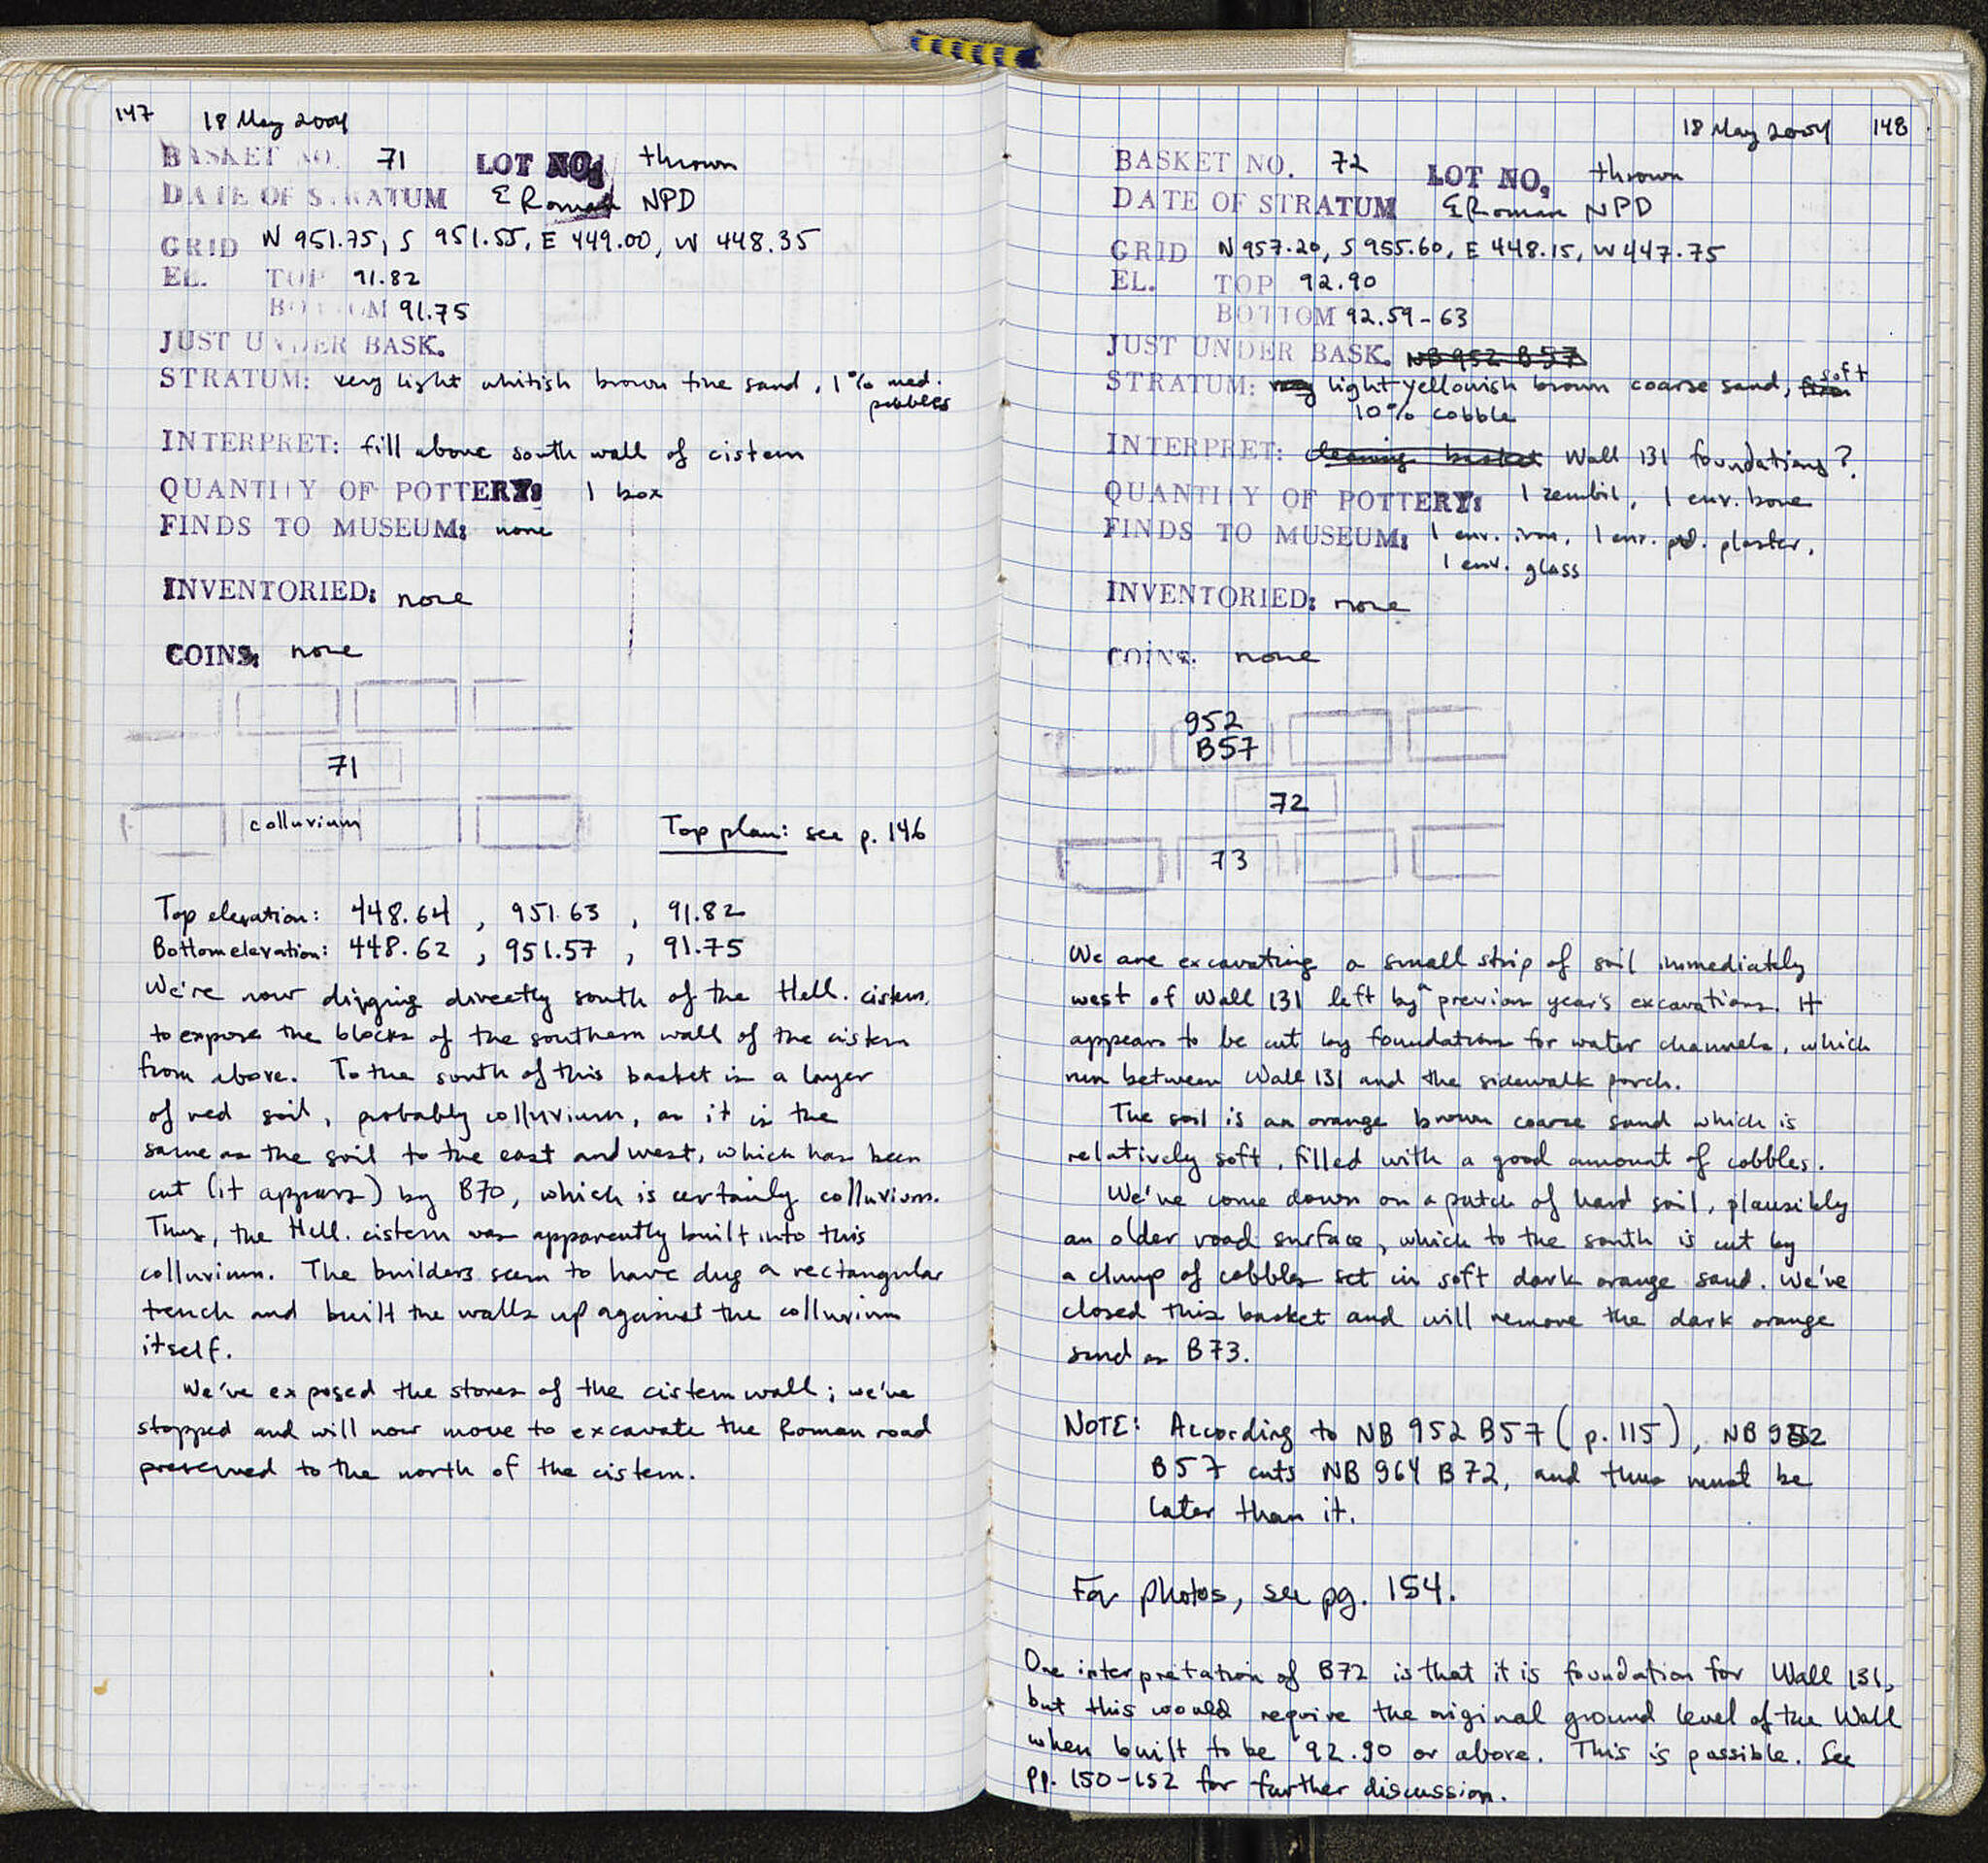 147 18 May 2004
BASKET NO. 71 LOT NO, thrown
DATE OF STRATUM E Roman NPD
GRID N 951.75, S 951.55, E 449.00, W 448.35
EL. TOP 91.82
BOTTOM 91.75
JUST UNDER BASK.
STRATUM: very light whitish brown fine sand, 1% med.
pebbles
INTERPRET: fill above south wall of cistern
QUANTITY OF POTTERY: 1 box
FINDS TO MUSEUM: none
INVENTORIED: none
COINS: none
71
colluvium
Top plan: see p. 146
Top elevation: 448.64 , 951.63 , 91.82
Bottom elevation: 448.62 , 951.57 , 91.75
We're now digging directly south of the Hell. cistern
to expose the blocks of the southern wall of the cistern
from above. To the south of this basket is a layer
of red soil, probably colluvium, as it is the
same as the soil to the east and west, which has been
cut (it appears) by B70, which is certainly colluvium.
Thus, the Hell. cistern was apparently built into this
colluvium. The builders seem to have dug a rectangular
trench and built the walls up against the colluvium
itself.
We've exposed the stones of the cistern wall; we've
stopped and will now move to excavate the Roman road
preserved to the north of the cistern.
18 May 2004 148
BASKET NO. 72 LOT NO, thrown
DATE OF STRATUM E Roman NPD
GRID N 957.20, S 955.60, E 448.15, W 447.75
EL. TOP 92.90
BOTTOM 92.59-63
JUST UNDER BASK. NB 952 B57
STRATUM: very light yellowish brown coarse sand, firm soft
10% cobble
INTERPRET: cleaning basket Wall 131 foundations?
QUANTITY OF POTTERY: 1 zembil, 1 env. bone
FINDS TO MUSEUM: 1 env. iron, 1 env. pd. plaster,
1 env. glass
INVENTORIED: none
COINS: none
952
B57
72
73
We are excavating a small strip of soil immediately
west of Wall 131 left by a previous year's excavations. It
appears to be cut by foundations for water channels, which
run between Wall 131 and the sidewalk porch.
The soil is an orange brown coarse sand which is
relatively soft, filled with a good amount of cobbles.
We've come down on a patch of hard soil, plausibly
an older road surface, which to the south is cut by
a clump of cobbles set in soft dark orange sand. We've
closed this basket and will remove the dark orange
sand as B73.
NOTE: According to NB 952 B57 (p. 115), NB 952
B57 cuts NB 964 B72, and thus must be
later than it.
For photos, see pg. 154.
One interpretation of B72 is that it is foundation for Wall 131,
but this would require the original ground level of the Wall
when built to be 92.90 or above. This is possible. See
pp. 150-152 for further discussion.